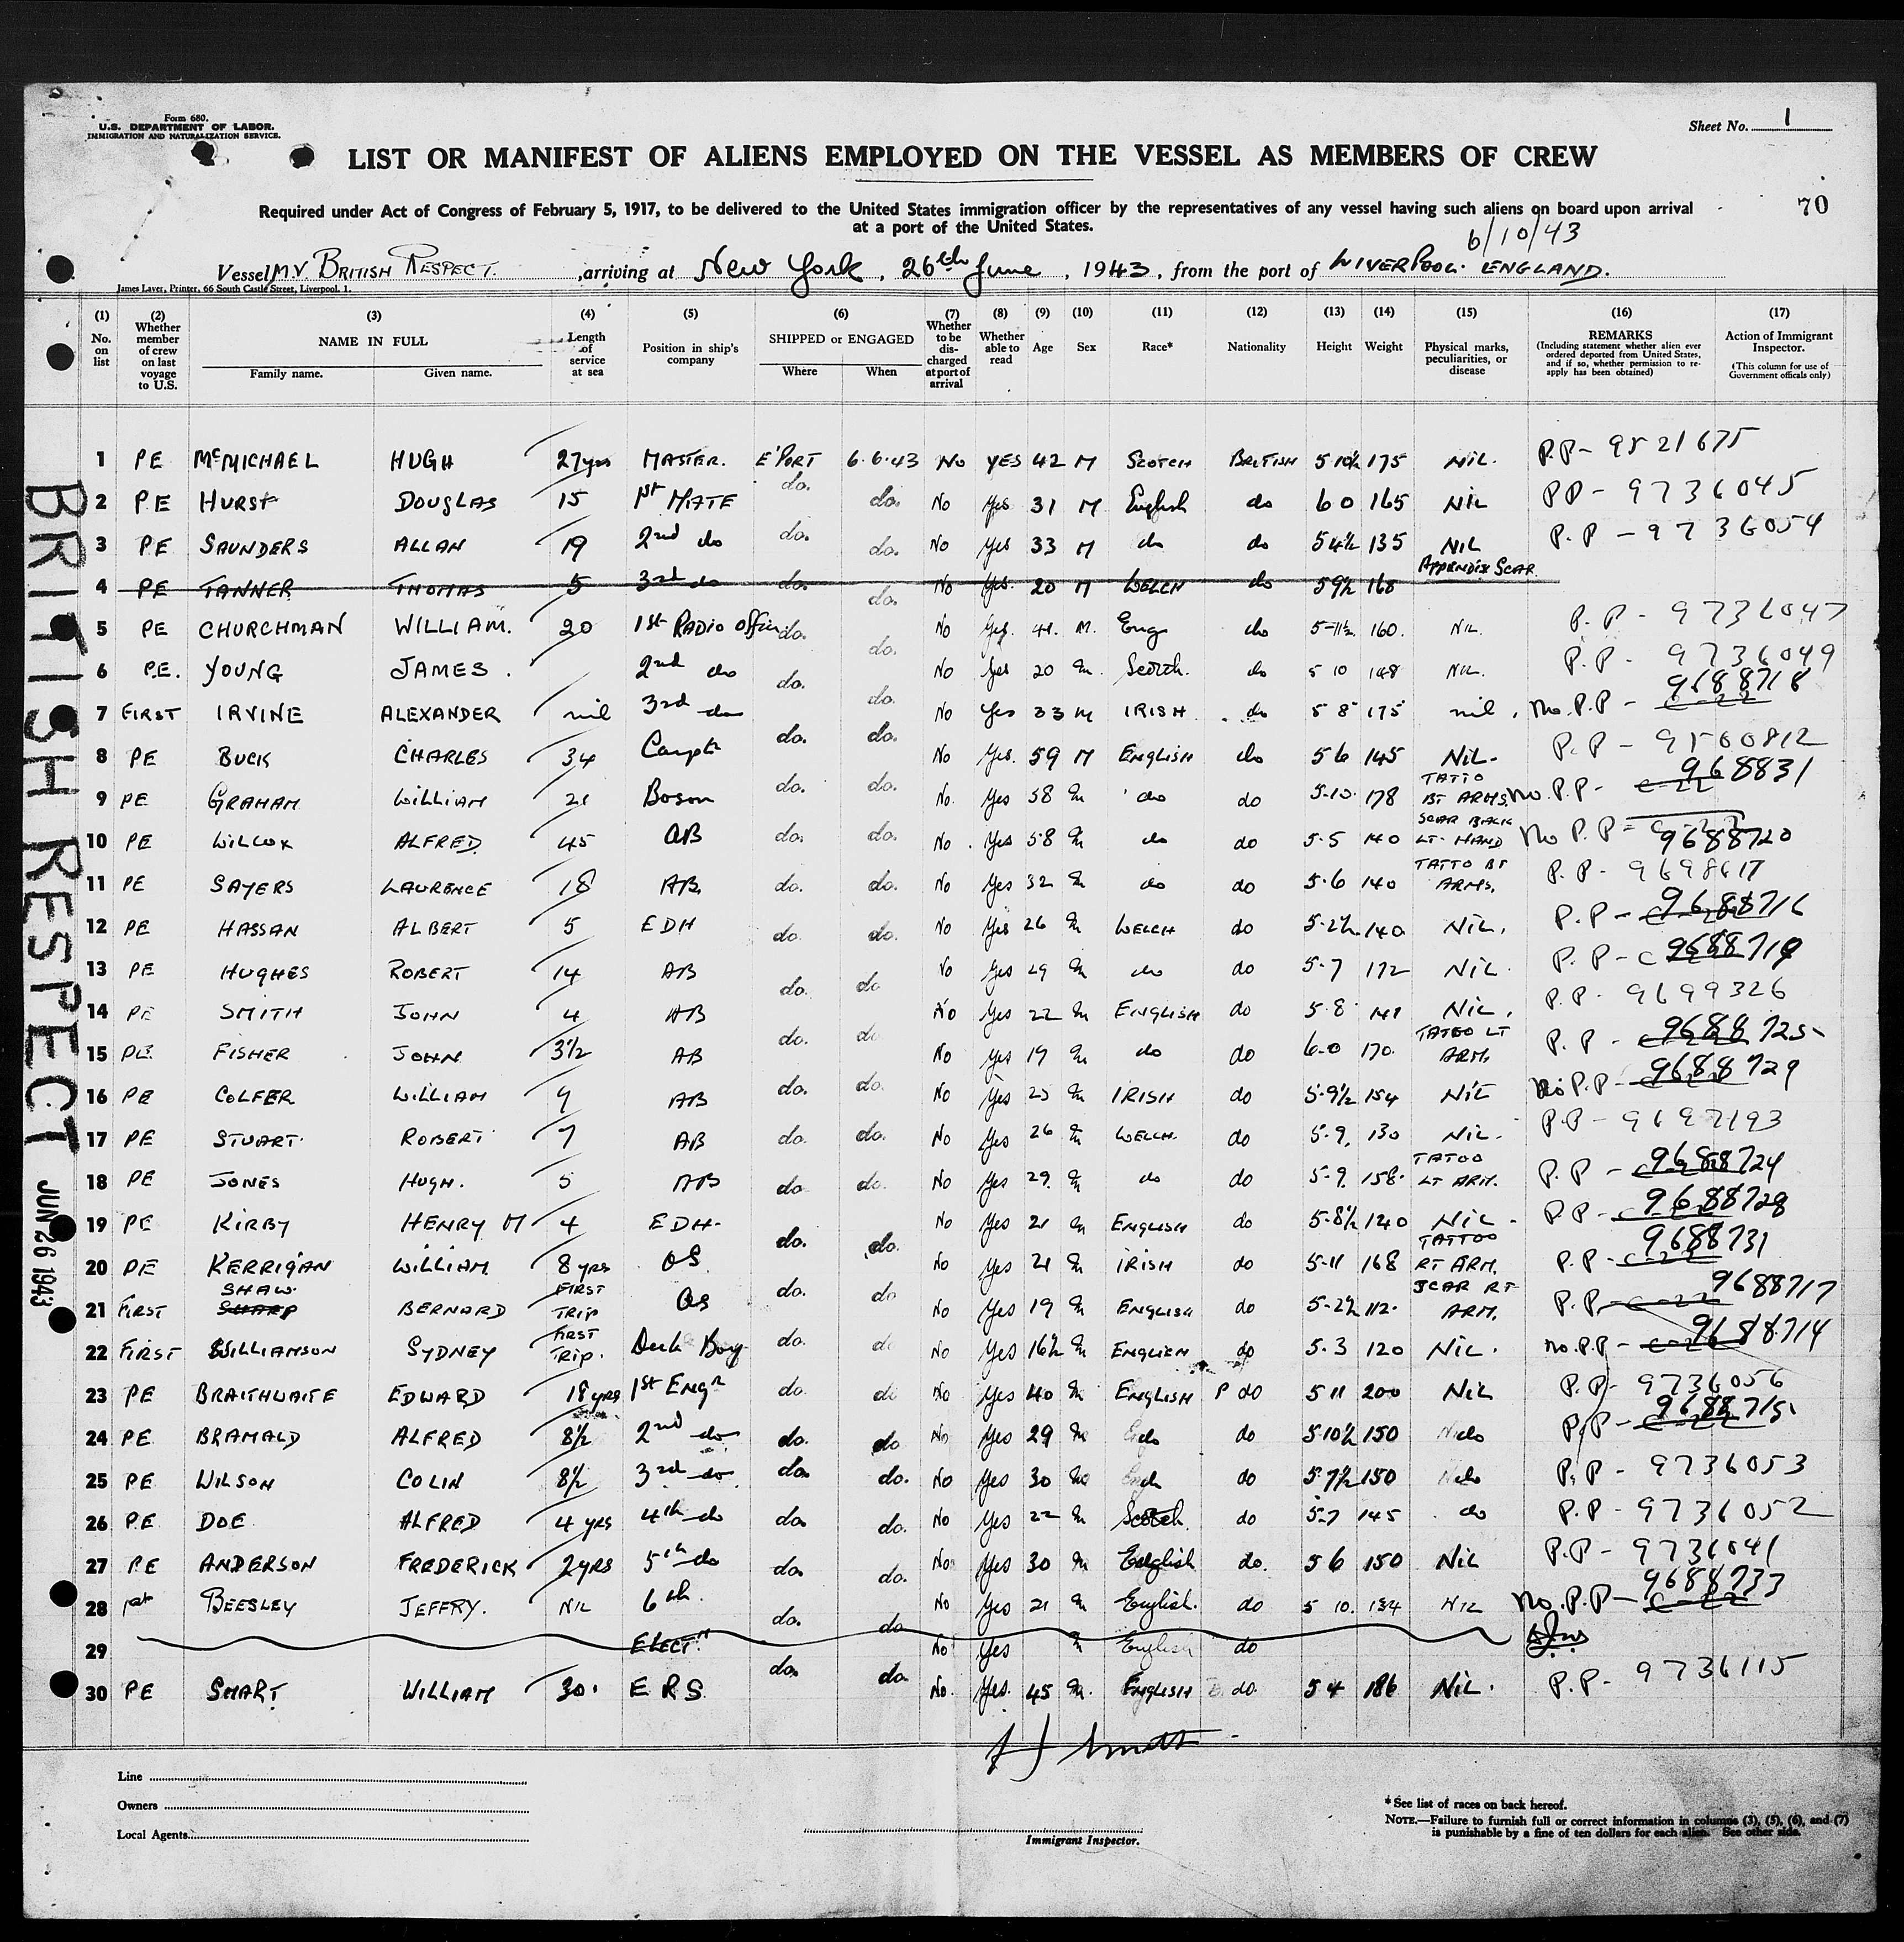 Form 680.
U.S. DEPARTMENT OF LABOR.
IMMIGRATION AND NATURALIZATION SERVICE.
Sheet No. 1
LIST OR MANIFEST OF ALIENS EMPLOYED ON THE VESSEL AS MEMBERS OF CREW
Required under Act of Congress of February 5, 1917, to be delivered to the United States immigration officer by the representatives of any vessel having such aliens on board upon arrival
at a port of the United States.
70
6/10/43
Vessel M.V. BRITISH RESPECT. , arriving at New York, 26th June, 1943, from the port of LIVERPOOL. ENGLAND.
James Laver, Printer, 66 South Castle Street, Liverpool. 1.
(1) No. on list (2) Whether member of crew on last voyage to U.S. (3) NAME IN FULL Family name. Given name. (4) Length of service at sea (5) Position in ship's company (6) SHIPPED or ENGAGED Where When (7) Whether to be discharged at port of arrival (8) Whether able to read (9) Age (10) Sex (11) Race* (12) Nationality (13) Height (14) Weight (15) Physical marks, peculiarities, or disease (16) REMARKS (Including statement whether alien ever ordered deported from United States, and if so, whether permission to re-apply has been obtained) (17) Action of Immigrant Inspector. (This column for use of Government officials only)
1 PE McMICHAEL HUGH 27yrs MASTER. E'PORT 6.6.43 No YES 42 M SCOTCH BRITISH 5 10½ 175 NIL. P.P- 9521675
2 PE HURST DOUGLAS 15 1st MATE do. do. No Yes 31 M English do 6 0 165 NIL PP- 9736045
3 PE SAUNDERS ALLAN 19 2nd do do. do. No Yes 33 M do do 5 4½ 135 NIL P.P - 9736054
4 PE TANNER THOMAS 5 3rd do do. do. No Yes. 20 M WELCH do 5 9½ 168 APPENDIX SCAR
5 PE CHURCHMAN WILLIAM. 20 1st RADIO Officer do. do. No Yes. 41. M. Eng do 5-11½ 160. NIL. P.P- 9736047
6 P.E. YOUNG JAMES. 2nd do do. do. No Yes 20 M. Scotch. do 5 10 148 NIL. P.P- 9736049
7 FIRST IRVINE ALEXANDER nil 3rd do do. do. No Yes 33 M IRISH. do 5 8 175 nil. No. P.P - 9688718
8 PE BUCK CHARLES 34 Carpt do. do. No Yes. 59 M ENGLISH do 5 6 145 NIL- P.P - 9500812
9 PE GRAHAM WILLIAM 21 Bosun do. do. No. Yes 58 M do do 5-10. 178 TATTO BT ARMS. No. P.P- 968831
10 PE WILCOX ALFRED 45 AB do. do. No. Yes 58 M do do 5-5 140 SCAR BACK LT. HAND No P.P- 9688720
11 PE SAYERS LAURENCE 18 AB. do. do. No Yes 32 M do do 5-6 140 TATTO BT ARMS. P.P- 9698617
12 PE HASSAN ALBERT 5 EDH do. do. No Yes 26 M WELCH do 5-2½ 140 NIL. P.P- 9688716
13 PE HUGHES ROBERT 14 AB do. do No Yes 29 M do do 5-7 172 NIL. P.P- 9688719
14 PE SMITH JOHN 4 AB No Yes 22 M ENGLISH do 5-8 141 NIL. P.P- 9699326
15 PE FISHER JOHN 3½ AB do. do. No Yes 19 M do do 6-0 170. TATOO LT ARM. P.P - 9688725
16 PE COLFER WILLIAM 9 AB do. do. No Yes 25 M IRISH do 5-9½ 154 NIL No P.P- 9688729
17 PE STUART. ROBERT 7 AB do. do. No Yes 26 M WELCH. do 5-9. 130 NIL. P.P- 9697193
18 PE JONES HUGH. 5 AB do. do. No Yes 29. M do do 5-9. 158. TATOO LT ARM. P.P - 9688724
19 PE KIRBY HENRY M 4 EDH- do. do. No Yes 21 M ENGLISH do 5-8½ 120 NIL- P.P- 9688728
20 PE KERRIGAN WILLIAM 8 yrs OS. No Yes 21 M IRISH do 5-11 168 TATTOO RT ARM. P.P- 9688731
21 FIRST SHAW SHARP BERNARD FIRST TRIP OS do. do No Yes 19 M ENGLISH do 5-2½ 112. SCAR RT ARM. P.P- 9688717
22 FIRST WILLIAMSON SYDNEY FIRST TRIP. Deck Boy do. do No Yes 16½ M ENGLISH do 5.3 120 NIL. No. P.P- 9688714
23 PE BRAITHWAITE EDWARD 18 yrs 1st Engr do. do No Yes 40 M ENGLISH do 5 11 200 NIL P.P- 9736056
24 PE BRAMALD ALFRED 8½ 2nd do do. do No Yes 29 M do do 5 10½ 150 do P.P- 9688715
25 PE WILSON COLIN 8½ 3rd do. do. do. No Yes 30 M do do 5-7½ 150 do P.P- 9736053
26 PE DOE ALFRED 4 yrs 4th do do. do. No Yes 22 M Scotch. do 5-7 145 do P.P- 9736052
27 PE ANDERSON FREDERICK 2yrs 5th do do. do. No Yes 30 M English do. 5 6 150 NIL P.P- 9736041
28 1st BEESLEY JEFFRY. NIL 6th. do. do No Yes 21 M English. do 5 10. 134 NIL No. P.P- 9688733
29 ELECTn No Yes M English do
30 PE SMART WILLIAM 30. E R S. do. do. No. Yes. 45 M. ENGLISH do. 5 4 186 NIL. P.P- 9736115
BRITISH RESPECT
JUN 26 1943
Line
Owners
Local Agents
Immigrant Inspector.
* See list of races on back hereof.
NOTE.—Failure to furnish full or correct information in columns (3), (5), (6), and (7)
is punishable by a fine of ten dollars for each alien. See other side.